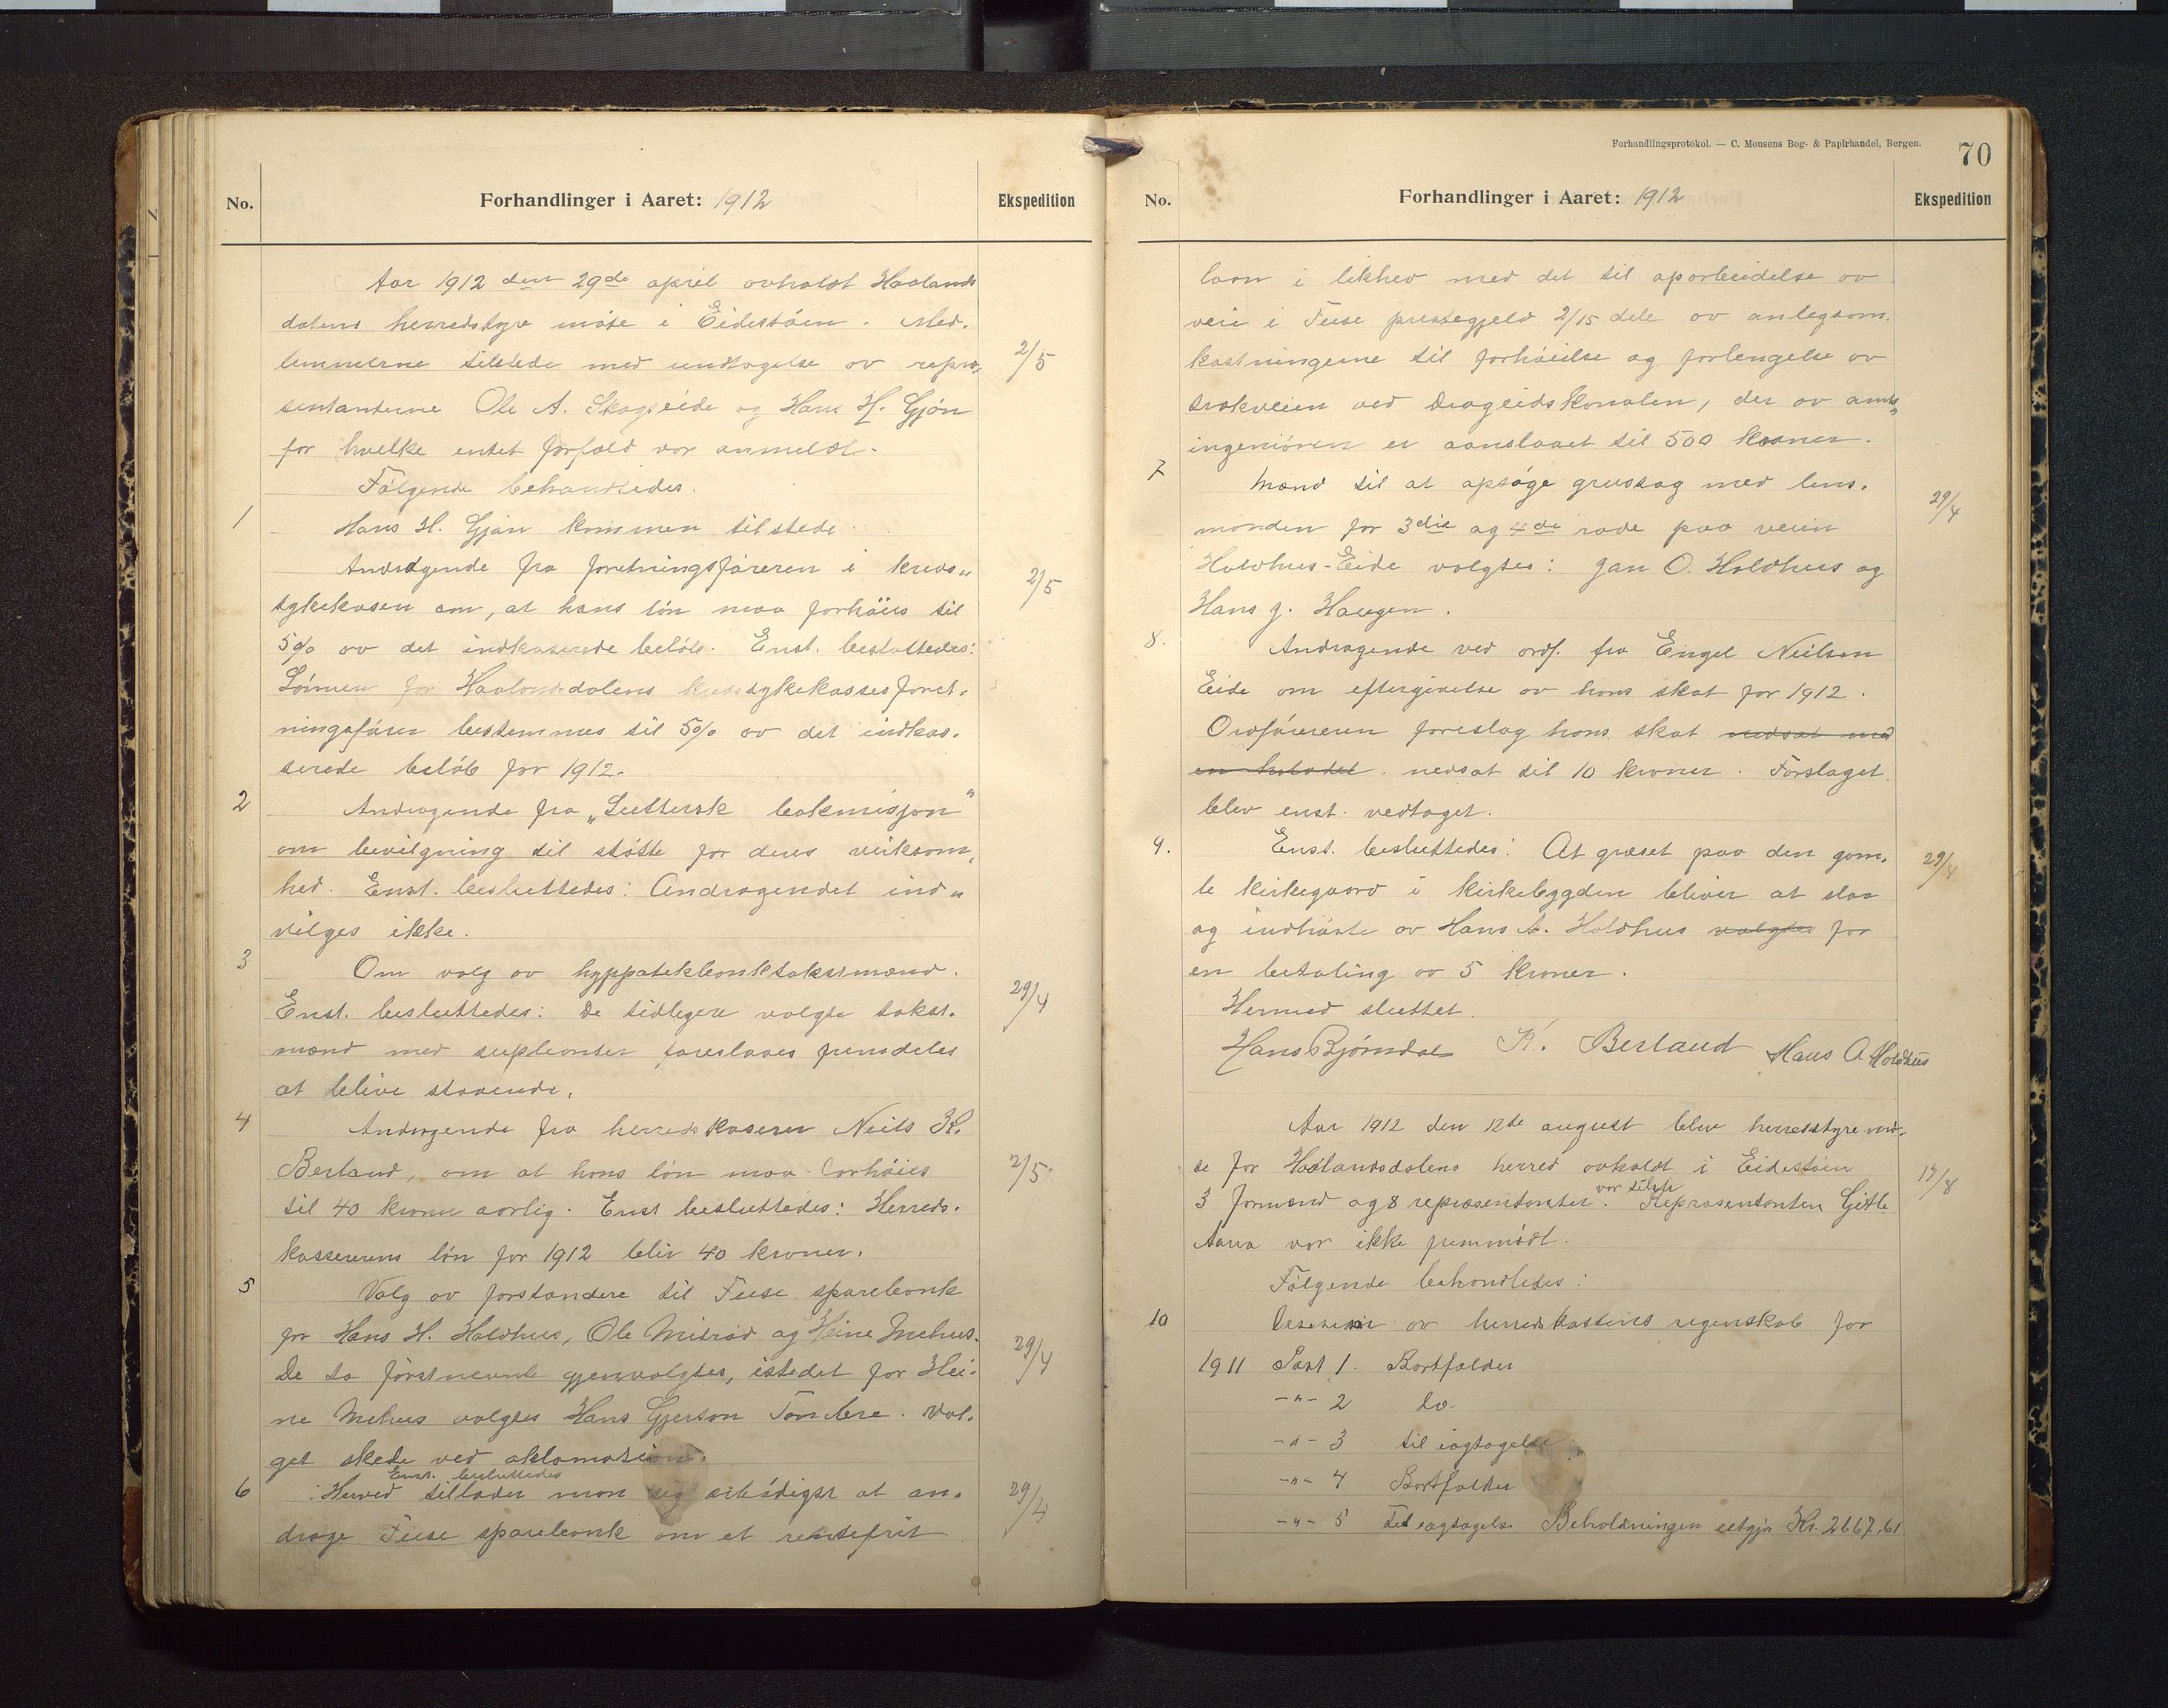 No.
Forhandlinger i Aaret: 1912
Ekspedition
Aar 1912 den 29de april avholdt Haalands
dalens herredstyre møte i Eidestøen. Med.
lemmerne tilstede med undtagelse av repræ„
sentanterne Ole A. Skogseide og Hans H. Gjøn
for hvilke intet forfald var anmeldt.
Følgende behandledes.
1
Hans H. Gjøn kommen tilstede.
Andragende fra foretningsføreren i kreds„
sykekasen om, at hans løn maa forhöies til
5% av det indkaserede beløb. Enst. besluttedes:
Lønnen for Haalandsdalens kredssykekasses foret.
ningsfører bestemmes til 5% av det indkas.
serede beløb for 1912.
2
Andragende fra „Luthersk bokmisjon"
om bevilgning til støtte for deres virksom,
hed. Enst. besluttedes: Andragendet ind„
vilges ikke.
3
Om valg av hyppotekbanktakstmænd.
Enst. besluttedes: De tidligere valgte takst.
mænd med supleanter foreslaaes fremdeles
at blive staaende.
4
Andragende fra herredskaserer Neils K.
Berland, om at hans løn maa forhöies
til 40 kroner aarlig. Enst besluttedes: Herreds.
kassererens løn for 1912 bliv 40 kroner.
5
Valg av forstandere til Fuse sparebank
for Hans H. Holdhus, Ole Mitrød og Heine Mehus.
De to førstnevnte gjenvalgtes, istedet for Hei-
ne Mehus valgtes Hans Gjertson Tombre. Val.
get skede ved aklamation.
Enst. besluttedes
6
: Herved tillader man sig erbødigst at an.
drage Fuse sparebank om et rentefrit
2/5
2/5
29/4
2/5
29/4
29/4
Forhandlingsprotokol. — C. Monsens Bog- & Papirhandel, Bergen.
70
No.
Forhandlinger i Aaret: 1912
Ekspedition
laan i likhed med det til oparbeidelse av
veie i Fuse prestegjeld 2/15 dele av anlegsom.
kostningerne til forhöielse og forlengelse av
trækveien ved Drageidskanalen, der av amts„
ingeniøren er aanslaaet til 500 kroner.
7
Mænd til at opsøge grustag med lens.
manden for 3die og 4de rode paa veien
Holdhus-Eide valgtes: Jan O. Holdhus og
Hans J. Haugen.
8.
Andragende ved ordf. fra Engel Neilsen
Eide om eftergivelse av hans skat for 1912.
Ordføreren foreslog hans skat nedsat med
en halvdel. nedsat til 10 kroner. Forslaget
blev enst. vedtaget.
9.
Enst. besluttedes: At græset paa den gam.
le kirkegaard i kirkebygden bliver at slaa
og indhøste av Hans A. Holdhus valgtes for
en betaling av 5 kroner.
Hermed sluttet.
Hans Bjørndal K. Berland Hans A. Holdhus
Aar 1912 den 12te august blev herredstyremø-
te for Haalandsdalens herred avholdt i Eidestøen
var tilst.
3 formænd og 8 repræsentanter. Repræsentanten Gitle
Aarra var ikke fremmødt.
Følgende behandledes:
10
Desesion av herredskassens regnskab for
1911 Post 1. Bortfalder
-"- 2 do.
-"- 3 til iagtagelse
-"- 4 Bortfalder
-"- 5 Til iagtagelse Beholdningen utgjør Kr. 2667,61
29/4
29/4
17/8